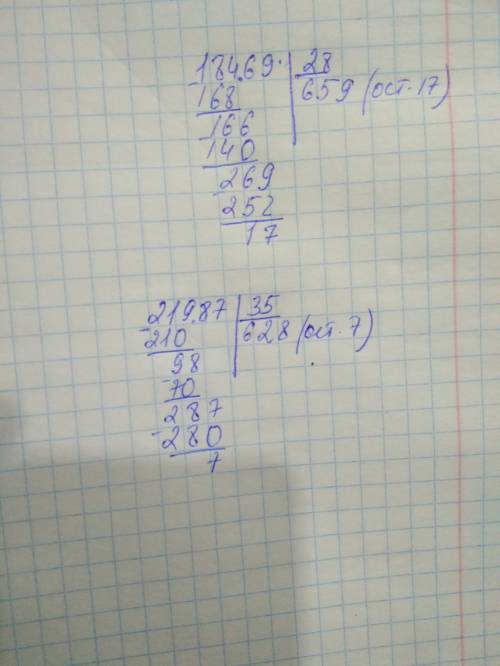 184.69 28
168 659 (ост. 17)
166
140
269
252
17
219.87 35
210 628 (ост. 7)
98
70
287
280
7